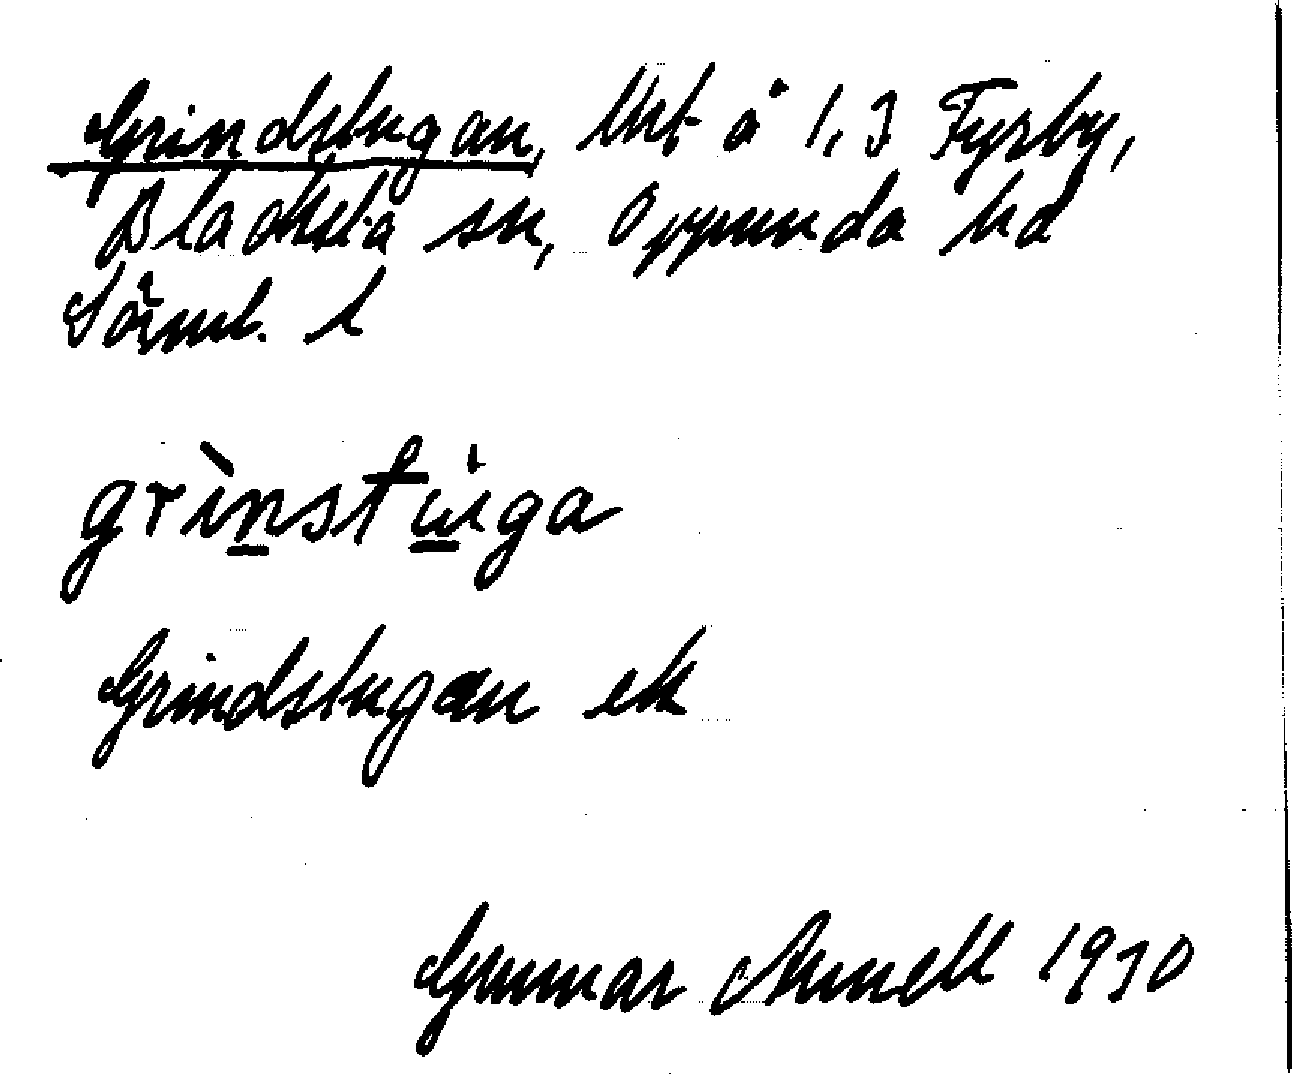 Grindstugan, lht å 1,3 Fyrby,
Blacksta sn, Oppunda hd
Sörml. l
grìnstu̇ga
Grindstugan ek
Gunnar 1930